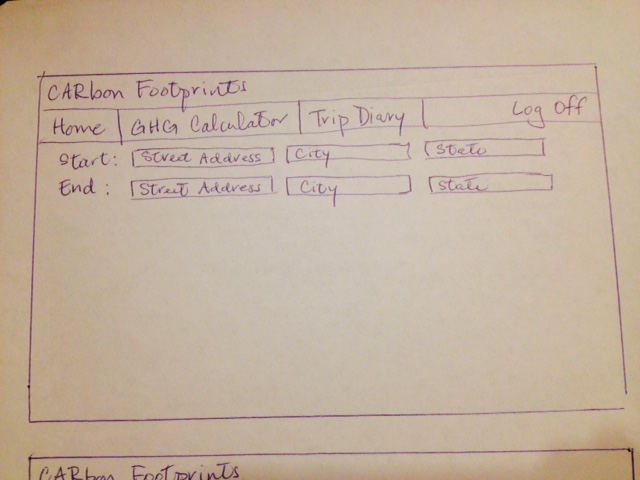 CARbon Footprints
Home GHG Calculator Trip Diary Log Off
Start: Street Address City State
End: Street Address City State
CARbon Footprints